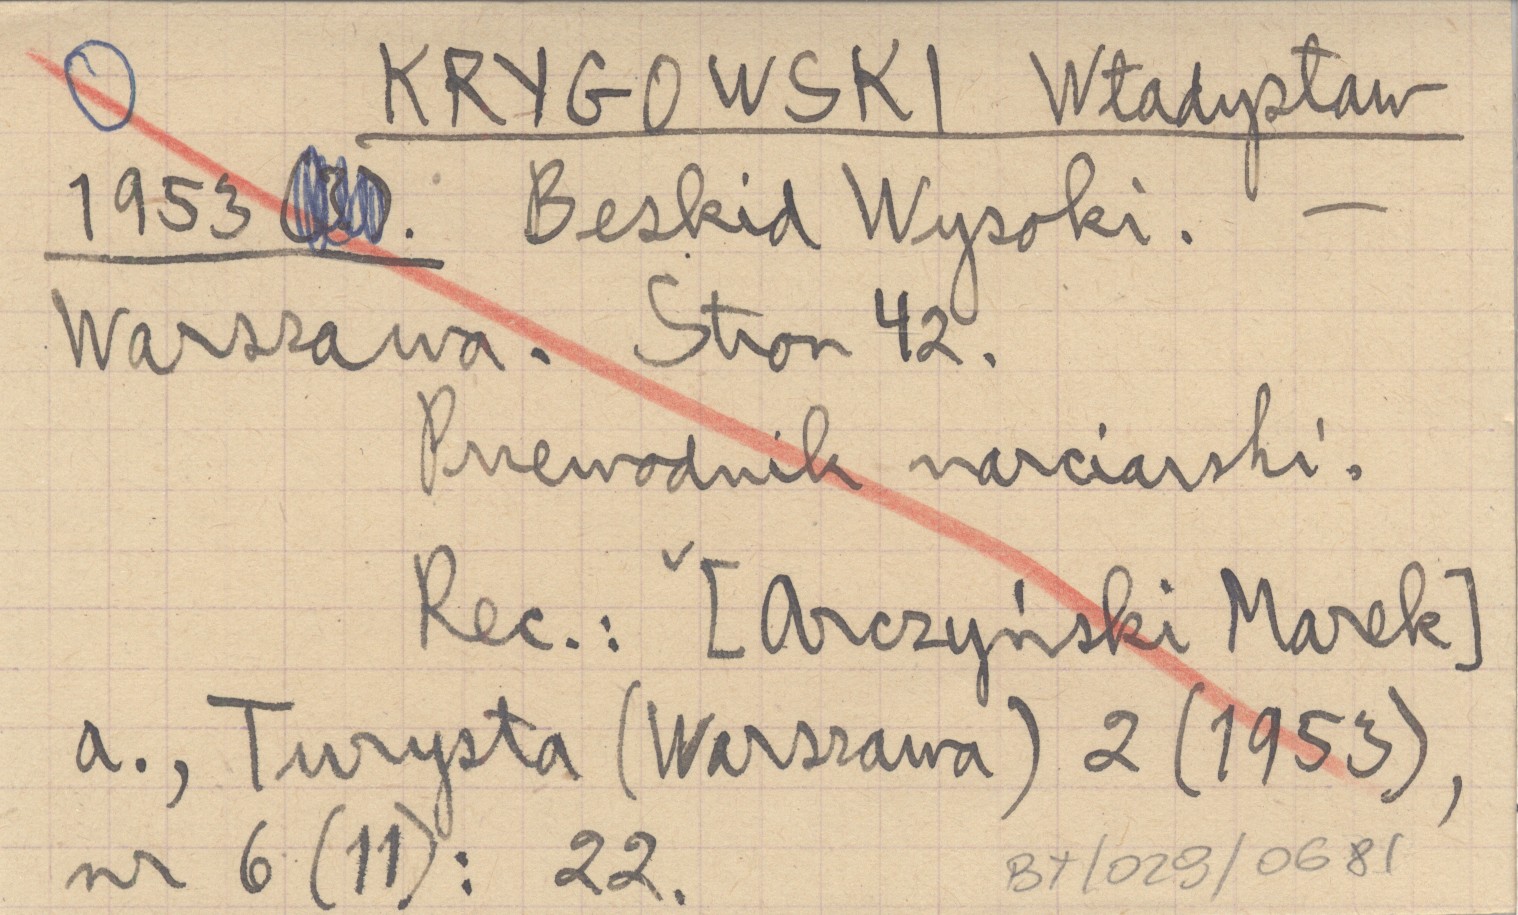 KRYGOWSKI Władysław
1953 . Beskid Wysoki. —
Warszawa. Stron 42.
Przewodnik narciarski.
Rec.: [Arczyński Marek]
a., Turysta (Warszawa) 2 (1953),
nr 6 (11): 22.
BT/029/0681